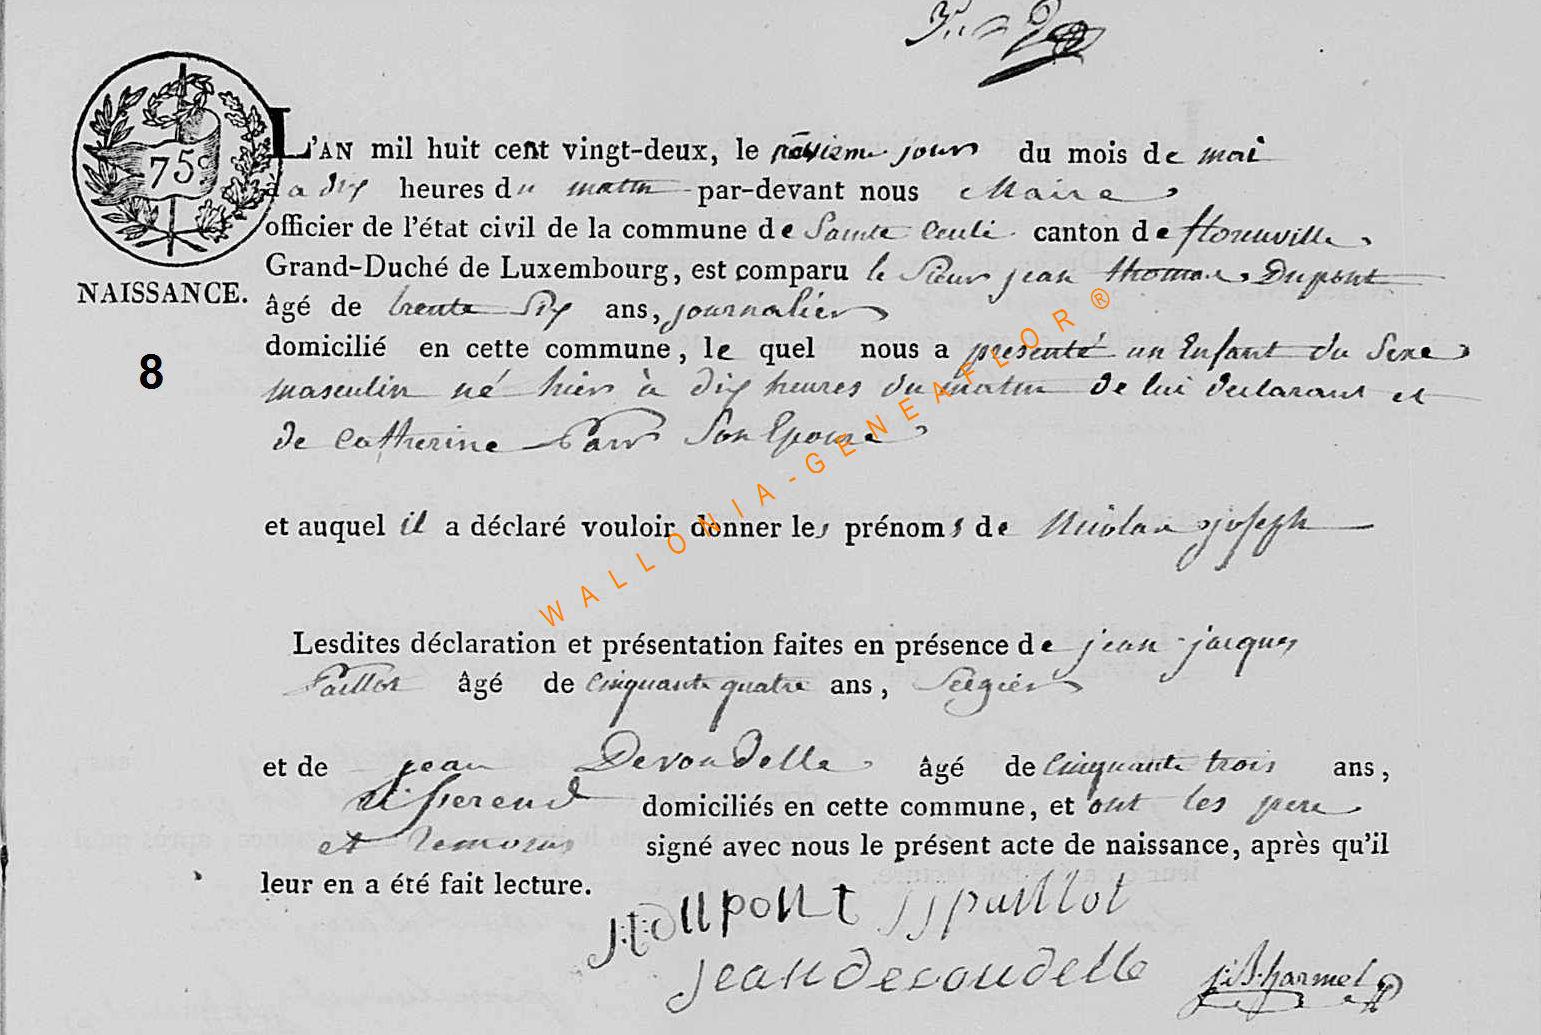 75c
NAISSANCE.
8
L'AN mil huit cent vingt-deux, le jours du mois de mai
à dix heures du matin par-devant nous Maire
officier de l'état civil de la commune de Sainte Cecile canton de florenville
Grand-Duché de Luxembourg, est comparu le Sieur jean thomas Dupont
âgé de trente Six ans, journalier
domicilié en cette commune, le quel nous a presenté un Enfant du Sexe
masculin né hier à dix heures du matin de lui declarant et
de Catherine Son Epouse
et auquel il a déclaré vouloir donner les prénoms de Nicolas joseph
Lesdites déclaration et présentation faites en présence de jean jacques
Paillot âgé de Cinquante quatre ans,
et de jean Devoudelle âgé de Cinquante trois ans,
domiciliés en cette commune, et ont les pere
et temoins signé avec nous le présent acte de naissance, après qu'il
leur en a été fait lecture.
j:t:dupont jjpaillot
jean devoudelle j:B:harmel
WALLONIA-GENEAFLOR®